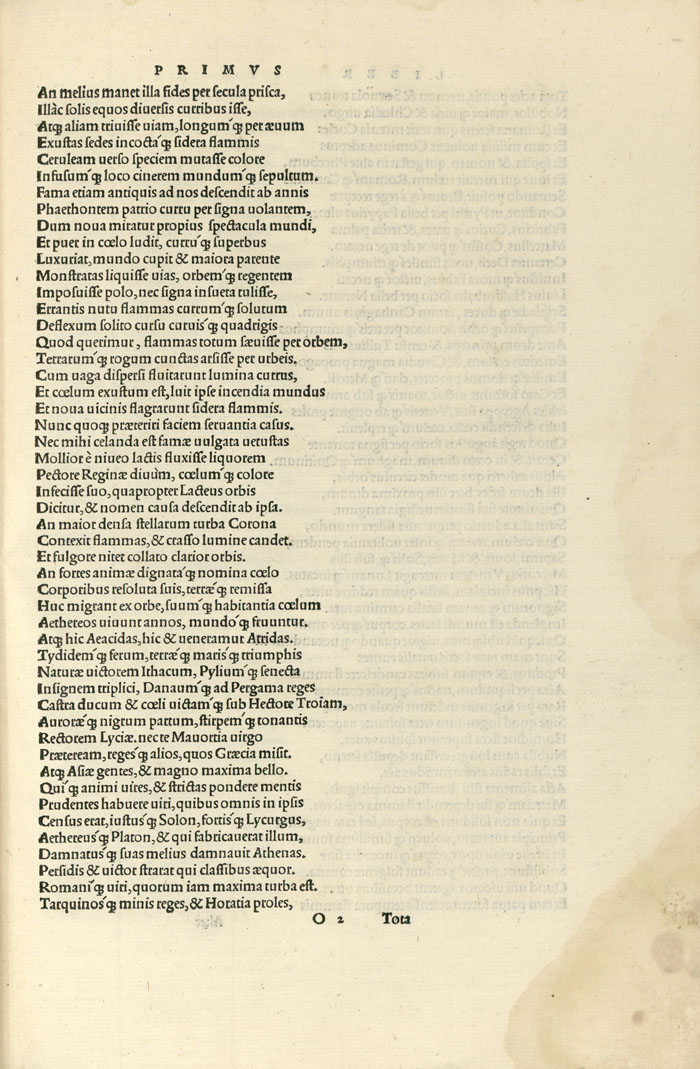 PRIMVS
An melius manet illa fides per secula prisca,
Illàc solis equos diuersis curribus isse,
Atq; aliam triuisse uiam, longumq́; per æuum
Exustas sedes incoctaq́; sidera flammis
Ceruleam uerso speciem mutasse colore
Infusumq́; loco cinerem mundumq́; sepultum.
Fama etiam antiquis ad nos descendit ab annis
Phaethontem patrio curru per signa uolantem,
Dum noua miratur propius spectacula mundi,
Et puer in cœlo ludit, curruq́; superbus
Luxuriat, mundo cupit & maiora parente
Monstratas liquisse uias, orbemq́; regentem
Imposuisse polo, nec signa insueta tulisse,
Errantis nutu flammas currumq́; solutum
Deflexum solito cursu curuisq́; quadrigis
Quod querimur, flammas totum sæuisse per orbem,
Terrarumq́; rogum cunctas arsisse per urbeis.
Cum uaga dispersi fluitarunt lumina currus,
Et cœlum exustum est, luit ipse incendia mundus
Et noua uicinis flagrarunt sidera flammis.
Nunc quoq; præteriti faciem seruantia casus.
Nec mihi celanda est famæ uulgata uetustas
Mollior è niueo lactis fluxisse liquorem
Pectore Reginæ diuûm, cœlumq́; colore
Infecisse suo, quapropter Lacteus orbis
Dicitur, & nomen causa descendit ab ipsa.
An maior densa stellarum turba Corona
Contexit flammas, & crasso lumine candet.
Et fulgore nitet collato clarior orbis.
An fortes animæ dignataq́; nomina cœlo
Corporibus resoluta suis, terræq́; remissa
Huc migrant ex orbe, suumq́; habitantia cœlum
Aethereos uiuunt annos, mundoq́; fruuntur.
Atq; hic Aeacidas, hic & ueneramur Atridas.
Tydidemq́; ferum, terræq́; marisq́; triumphis
Naturæ uictorem Ithacum, Pyliumq́; senecta
Insignem triplici, Danaumq́; ad Pergama reges
Castra ducum & cœli uictamq́; sub Hectore Troiam,
Auroræq́; nigrum partum, stirpemq́; tonantis
Rectorem Lyciæ. nec te Mauortia uirgo
Præteream, regesq́; alios, quos Græcia misit.
Atq; Asiæ gentes, & magno maxima bello.
Quiq́; animi uires, & strictas pondere mentis
Prudentes habuere uiri, quibus omnis in ipsis
Census erat, iustusq́; Solon, fortisq́; Lycurgus,
Aethereusq́; Platon, & qui fabricauerat illum,
Damnatusq́; suas melius damnauit Athenas.
Persidis & uictor strarat qui classibus æquor.
Romaniq́; uiri, quorum iam maxima turba est.
Tarquinosq́; minis reges, & Horatia proles,
O 2 Tota